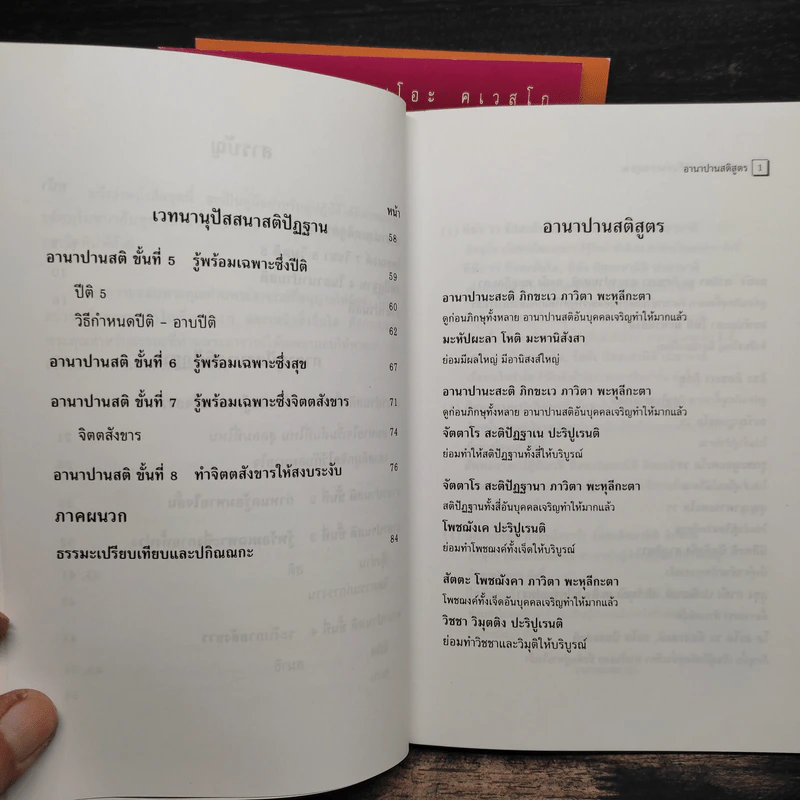 โอะ คเวสโก
หน้า
เวทนานุปัสสนาสติปัฏฐาน 58
อานาปานสติ ขั้นที่ 5 รู้พร้อมเฉพาะซึ่งปีติ 59
ปีติ 5 60
วิธีกำหนดปีติ - อาบปีติ 62
อานาปานสติ ขั้นที่ 6 รู้พร้อมเฉพาะซึ่งสุข 67
อานาปานสติ ขั้นที่ 7 รู้พร้อมเฉพาะซึ่งจิตตสังขาร 71
จิตตสังขาร 74
อานาปานสติ ขั้นที่ 8 ทำจิตตสังขารให้สงบระงับ 76
ภาคผนวก
ธรรมะเปรียบเทียบและปกิณณกะ 84
อานาปานสติสูตร 1
อานาปานสติสูตร
อานาปานะสะติ ภิกขะเว ภาวิตา พะหุลีกะตา
ดูก่อนภิกษุทั้งหลาย อานาปานสติอันบุคคลเจริญทำให้มากแล้ว
มะหัปผะลา โหติ มะหานิสังสา
ย่อมมีผลใหญ่ มีอานิสงส์ใหญ่
อานาปานะสะติ ภิกขะเว ภาวิตา พะหุลีกะตา
ดูก่อนภิกษุทั้งหลาย อานาปานสติอันบุคคลเจริญทำให้มากแล้ว
จัตตาโร สะติปัฏฐาเน ปะริปูเรนติ
ย่อมทำให้สติปัฏฐานทั้งสี่ให้บริบูรณ์
จัตตาโร สะติปัฏฐานา ภาวิตา พะหุลีกะตา
สติปัฏฐานทั้งสี่อันบุคคลเจริญทำให้มากแล้ว
โพชฌังเค ปะริปูเรนติ
ย่อมทำโพชฌงค์ทั้งเจ็ดให้บริบูรณ์
สัตตะ โพชฌังคา ภาวิตา พะหุลีกะตา
โพชฌงค์ทั้งเจ็ดอันบุคคลเจริญทำให้มากแล้ว
วิชชา วิมุตติง ปะริปูเรนติ
ย่อมทำวิชชาและวิมุติให้บริบูรณ์